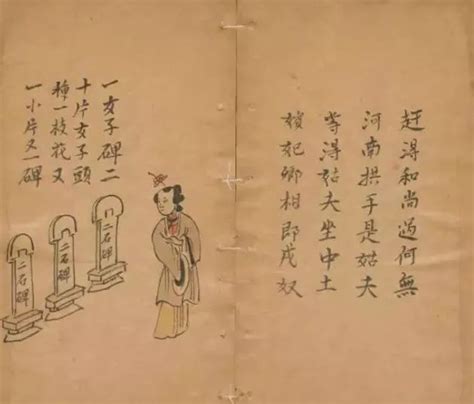 赶得和尚過何無
河南拱手是姑夫
等得姑夫坐中土
嬪妃卿相即成奴
一女子碑二
十片女子頭
種一枝花又
一小片又一碑
二石碑
二石碑
二石碑